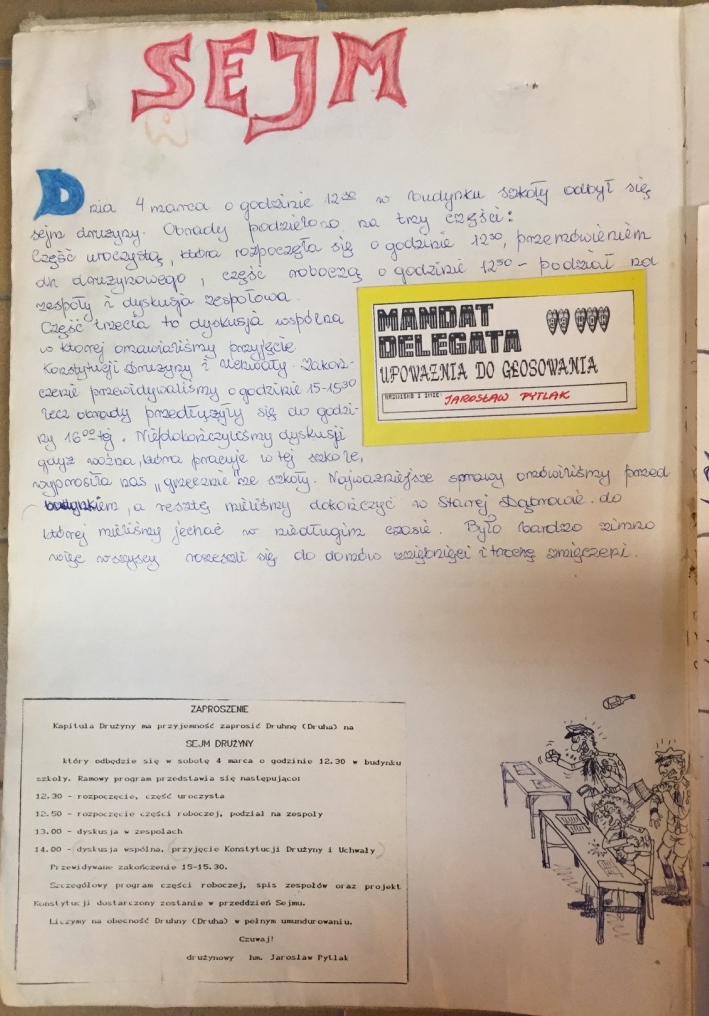 SEJM
Dnia 4 marca o godzinie 12³⁰ w budynku szkoły odbył się
sejm drużyny. Obrady podzielono na trzy części:
Część uroczystą, która rozpoczęła się o godzinie 12³⁰, przemówieniem
dh drużynowego, część roboczą o godzinie 12⁵⁰ - podział na
zespoły i dyskusja zespołowa.
Część trzecia to dyskusja wspólna
w której omawialiśmy przyjęcie
Konstytucji Drużyny i Uchwały. Zakoń-
czenie przewidywaliśmy o godzinie 15-15³⁰
lecz obrady przedłużyły się do godzi-
ny 16⁰⁰tej. Niedokończyliśmy dyskusji
gdyż woźna, która pracuje w tej szkole,
wyprosiła nas "grzecznie" ze szkoły. Najważniejsze sprawy omówiliśmy przed
budynkiem, a resztę mieliśmy dokończyć w Starej Dąbrowie do
której mieliśmy jechać w niedługim czasie. Było bardzo zimno
więc wszyscy rozeszli się do domów wziębnięci i trochę zmęczeni.
MANDAT
DELEGATA
UPOWAŻNIA DO GŁOSOWANIA
NAZWISKO I IMIĘ: JAROSŁAW PYTLAK
ZAPROSZENIE
Kapituła Drużyny ma przyjemność zaprosić Druhnę (Druha) na
SEJM DRUŻYNY
który odbędzie się w sobotę 4 marca o godzinie 12.30 w budynku
szkoły. Ramowy program przedstawia się następująco:
12.30 - rozpoczęcie, część uroczysta
12.50 - rozpoczęcie części roboczej, podział na zespoły
13.00 - dyskusja w zespołach
14.00 - (dyskusja wspólna, przyjęcie Konstytucji Drużyny i Uchwały)
Przewidywane zakończenie 15-15.30.
Szczegółowy program części roboczej, spis zespołów oraz projekt
Konstytucji dostarczony zostanie w przeddzień Sejmu.
Liczymy na obecność Druhny (Druha) w pełnym umundurowaniu.
Czuwaj!
drużynowy hm. Jarosław Pytlak